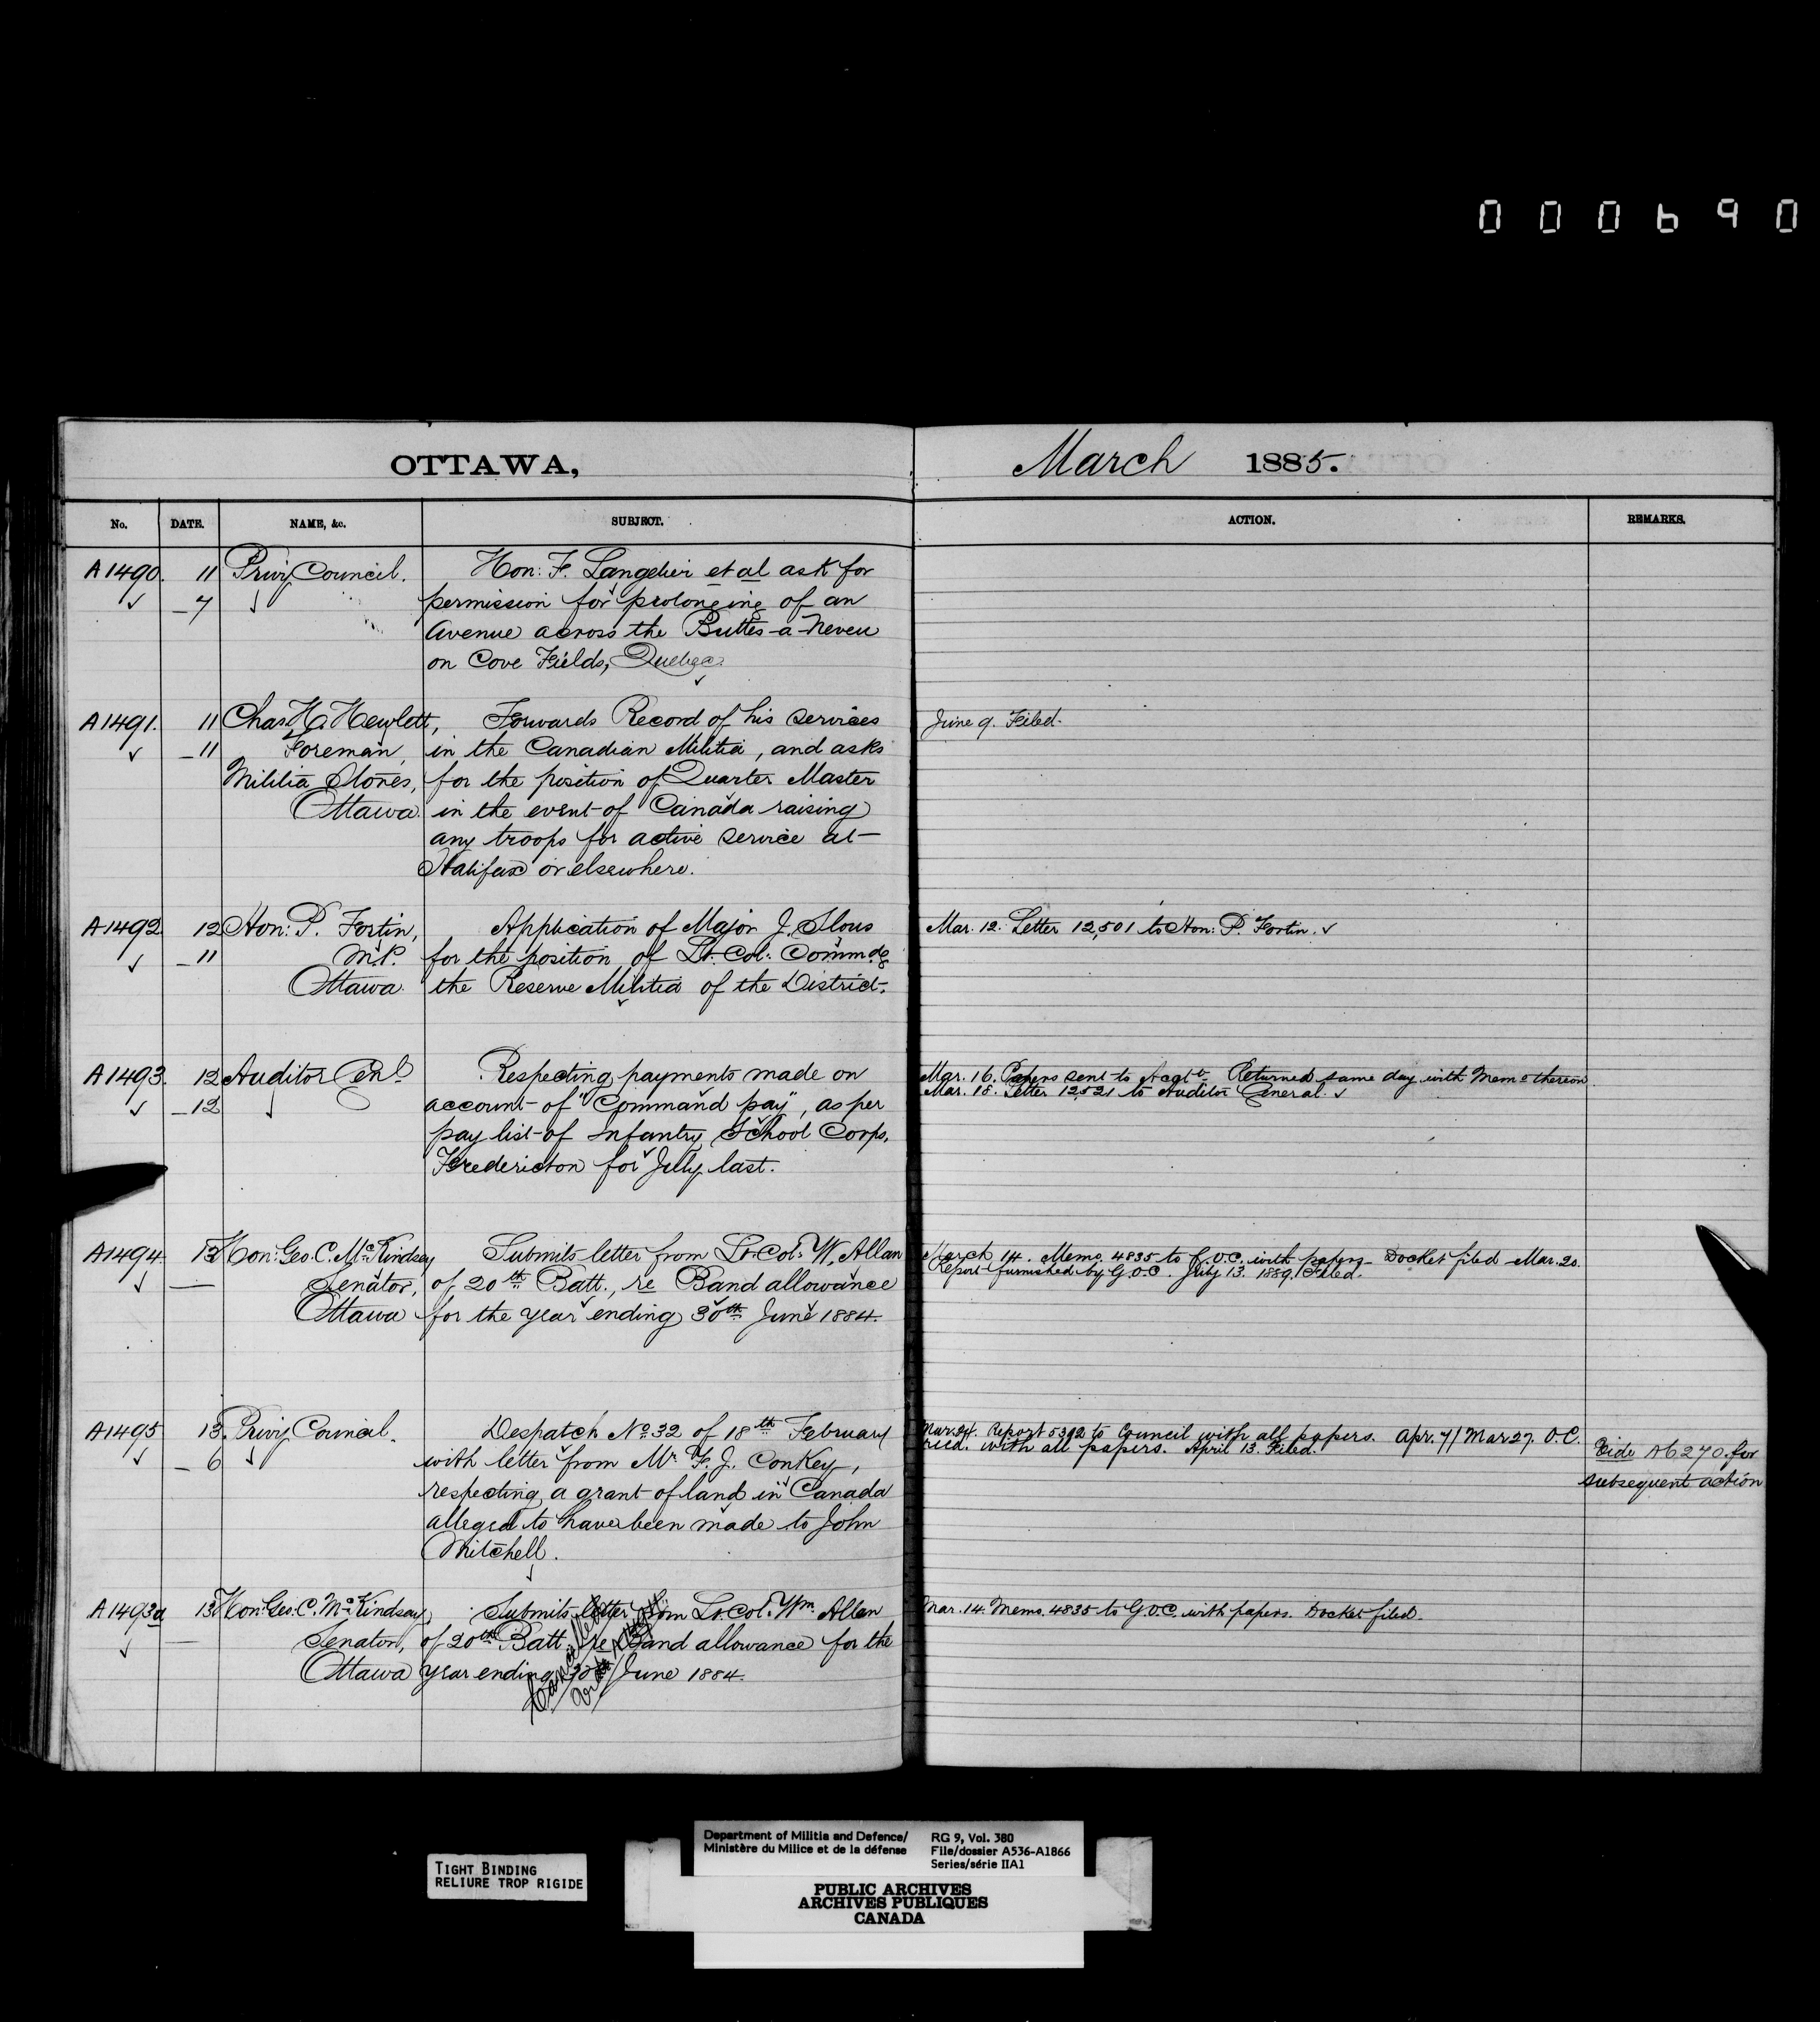 000690
OTTAWA,
March 1885.
No. DATE. NAME, &c. SUBJECT. ACTION. REMARKS.
A1490. 11 Privy Council. Hon: F. Langelier et al ask for
7 permission for prolonging of an
Avenue across the Buttes-a-Neveu
on Cove Fields, Quebec.
A1491. 11 Chas. H. Hewlett, Forwards Record of his services June 9. Filed.
11 Foreman, in the Canadian Militia, and asks
Militia Stores, for the position of Quarter Master
Ottawa. in the event of Canada raising
any troops for active service at
Halifax or elsewhere.
A1492. 12 Hon: P. Fortin, Application of Major J. Slous Mar. 12. Letter 12,501 to Hon: P. Fortin.
11 M.P. for the position of Lt. Col: Commdg
Ottawa. the Reserve Militia of the District.
A1493. 12 Auditor Genl. Respecting payments made on Mar. 16. Papers sent to Acctt. Returned same day with Memo thereon.
12 account of "Command pay", as per Mar. 18. Letter 12,521 to Auditor General.
pay list of Infantry School Corps,
Fredericton for July last.
A1494. 13 Hon: Geo. C. McKindsey Submits letter from Lt. Col: W. Allan March 14. Memo. 4835 to G.O.C. with papers. Docket filed Mar. 20.
— Senator, of 20th Batt., re Band allowance Report furnished by G.O.C. July 13. 1889. Filed.
Ottawa for the year ending 30th June 1884.
A1495 13. Privy Council. Despatch No. 32 of 18th February Mar. 24. Report 5392 to Council with all papers. Apr. 7/Mar 27. O.C.
6 with letter from Mr. F. J. Conkey, recd. with all papers. April 13. Filed. Vide A6270 for
respecting a grant of land in Canada subsequent action
alleged to have been made to John
Mitchell.
A1493a 13 Hon: Geo. C. McKindsay, Submits letter from Lt. Col: Wm. Allan Mar. 14. Memo. 4835 to G.O.C. with papers. Docket filed.
— Senator, of 20th Batt. re Band allowance for the
Ottawa year ending 30th June 1884.
Cancelled
TIGHT BINDING
RELIURE TROP RIGIDE
Department of Militia and Defence/
Ministère du Milice et de la défense
RG 9, Vol. 380
File/dossier A536-A1866
Series/série IIA1
PUBLIC ARCHIVES
ARCHIVES PUBLIQUES
CANADA